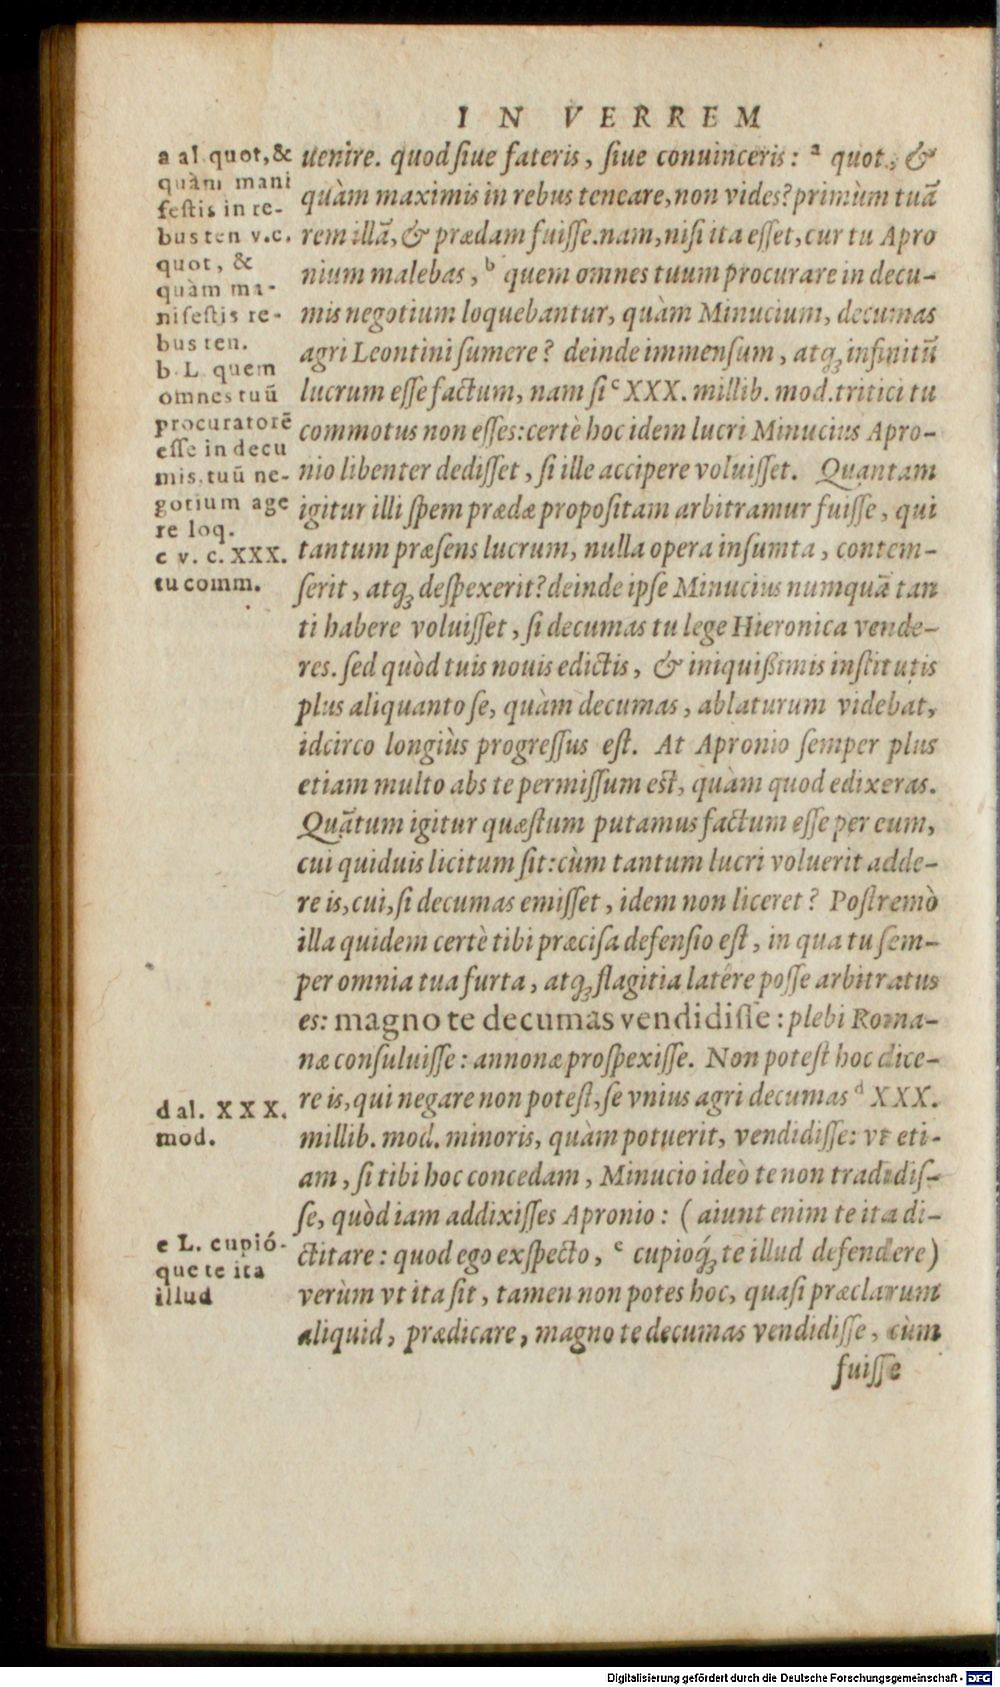 IN VERREM
a al. quot, &
quàm mani
festis in re-
bus ten v.c.
quot, &
quàm ma-
nifestis re-
bus ten.
b L quem
omnes tuũ
procuratorẽ
esse in decu
mis, tuũ ne-
gotium age
re loq.
c v. c. XXX.
tu comm.
d al. XXX.
mod.
e L. cupió-
que te ita
illud
uenire. quod siue fateris, siue conuinceris: a quot, &
quàm maximis in rebus teneare, non vides? primùm tuã
rem illã, & prædam fuisse. nam, nisi ita esset, cur tu Apro
nium malebas, b quem omnes tuum procurare in decu-
mis negotium loquebantur, quàm Minucium, decumas
agri Leontini sumere? deinde immensum, atq; infinitũ
lucrum esse factum, nam si c XXX. millib. mod. tritici tu
commotus non esses: certè hoc idem lucri Minucius Apro-
nio libenter dedisset, si ille accipere voluisset. Quantam
igitur illi spem prædæ propositam arbitramur fuisse, qui
tantum præsens lucrum, nulla opera insumta, contem-
serit, atq; despexerit? deinde ipse Minucius numquã tan
ti habere voluisset, si decumas tu lege Hieronica vende-
res. sed quòd tuis nouis edictis, & iniquißimis institutis
plus aliquanto se, quàm decumas, ablaturum videbat,
idcirco longiùs progressus est. At Apronio semper plus
etiam multo abs te permissum est, quàm quod edixeras.
Quãtum igitur quæstum putamus factum esse per eum,
cui quiduis licitum sit: cùm tantum lucri voluerit adde-
re is, cui, si decumas emisset, idem non liceret? Postremò
illa quidem certè tibi præcisa defensio est, in qua tu sem-
per omnia tua furta, atq; flagitia latêre posse arbitratus
es: magno te decumas vendidisse: plebi Roma-
næ consuluisse: annonæ prospexisse. Non potest hoc dice-
re is, qui negare non potest, se vnius agri decumas d XXX.
millib. mod. minoris, quàm potuerit, vendidisse: vt eti-
am, si tibi hoc concedam, Minucio ideò te non tradidis-
se, quòd iam addixisses Apronio: (aiunt enim te ita di-
ctitare: quod ego exspecto, e cupioq́; te illud defendere)
verùm vt ita sit, tamen non potes hoc, quasi præclarum
aliquid, prædicare, magno te decumas vendidisse, cùm
fuisse
Digitalisierung gefördert durch die Deutsche Forschungsgemeinschaft - DFG